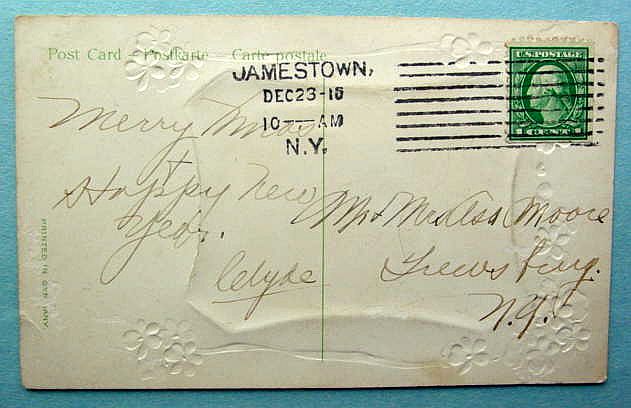 Post Card – Postkarte – Carte postale
U.S. POSTAGE
1 CENT 1
JAMESTOWN,
DEC 23-15
10 — AM
N.Y.
Merry Xmas
+
Happy New
Year.
Clyde
Mr & Mrs Asa Moore
Frewsburg.
N.Y.
PRINTED IN GERMANY